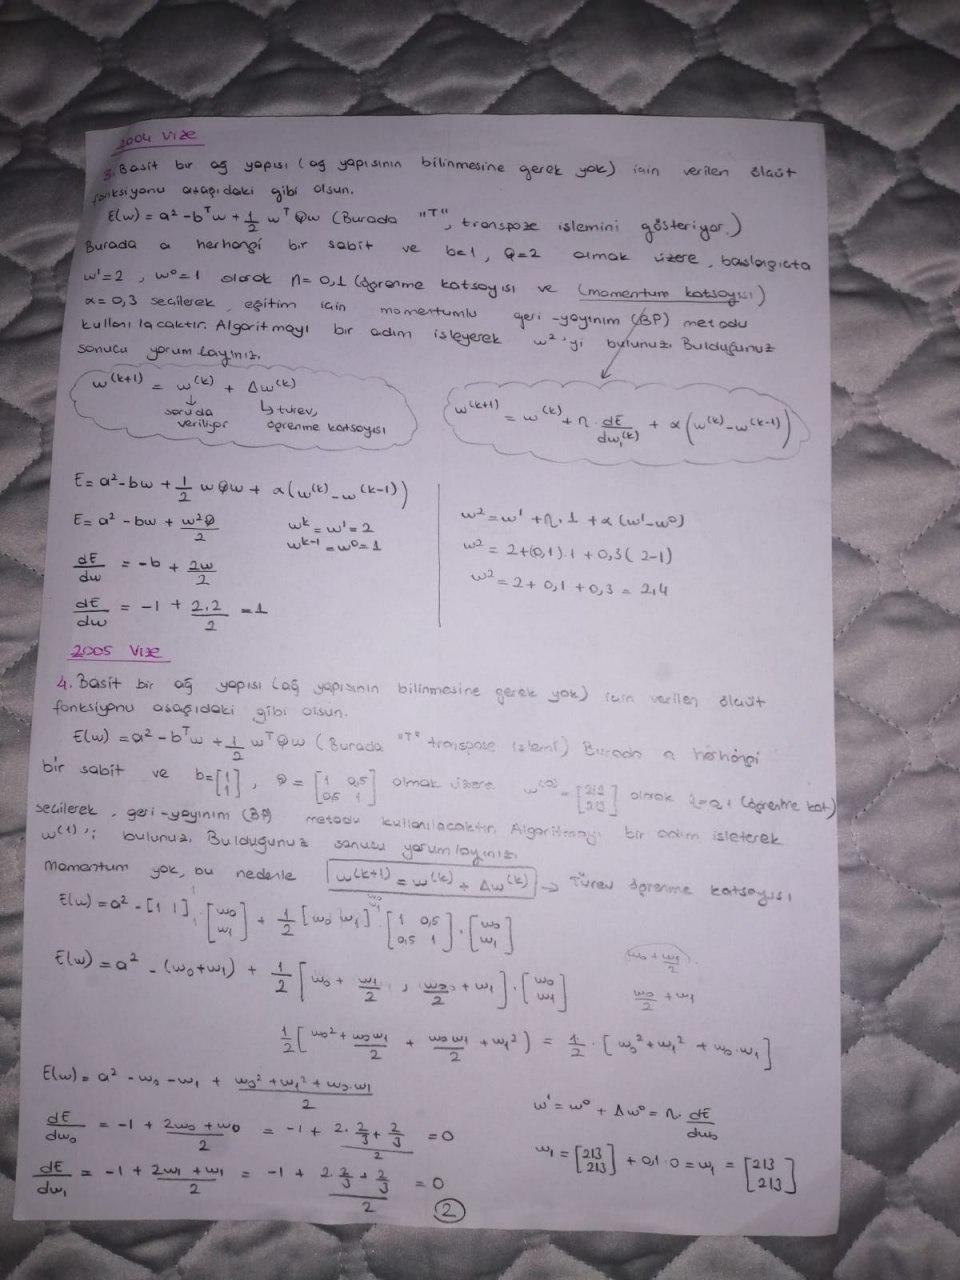 2004 Vize
3. Basit bir ağ yapısı (ağ yapısının bilinmesine gerek yok) için verilen ölçüt
fonksiyonu aşağıdaki gibi olsun.
E(w) = a² - bᵀw + 1/2 wᵀQw (Burada "T", transpoze işlemini gösteriyor.)
Burada a herhangi bir sabit ve b=1, Q=2 olmak üzere, başlangıçta
w¹=2, w⁰=1 olarak η= 0,1 (öğrenme katsayısı ve (momentum katsayısı)
α=0,3 seçilerek, eğitim için momentumlu geri-yayınım (BP) metodu
kullanılacaktır. Algoritmayı bir adım işleyerek w²'yi bulunuz. Bulduğunuz
sonucu yorumlayınız.
w^(k+1) = w^(k) + Δw^(k)
↓ soruda veriliyor
↳ türev, öğrenme katsayısı
w^(k+1) = w^(k) + η . dE/dw₁^(k) + α(w^(k) - w^(k-1))
E= a²-bw + 1/2 wQw + α(w^(k) - w^(k-1))
E= a² - bw + w²Q/2
w^k = w¹ = 2
w^k-1 = w⁰ = 1
dE/dw = -b + 2w/2
dE/dw = -1 + 2.2/2 = 1
w² = w¹ + η.1 + α(w¹-w⁰)
w² = 2+(0,1).1 + 0,3( 2-1)
w² = 2 + 0,1 + 0,3 = 2,4
2005 Vize
4. Basit bir ağ yapısı (ağ yapısının bilinmesine gerek yok) için verilen ölçüt
fonksiyonu aşağıdaki gibi olsun.
E(w) = a² - bᵀw + 1/2 wᵀQw (Burada "T" transpoze işlemi) Burada a herhangi
bir sabit ve b=[1 1], Q = [1 0,5 0,5 1] olmak üzere w^(0) = [2/3 2/3] olarak η=0,1 (öğrenme kat)
seçilerek, geri-yayınım (BP) metodu kullanılacaktır. Algoritmayı bir adım işleterek
w^(1)'i bulunuz. Bulduğunuz sonucu yorumlayınız.
Momentum yok, bu nedenle w^(k+1) = w^(k) + Δw^(k) → Türev öğrenme katsayısı
E(w) = a² - [1 1] . [w₀ w₁] + 1/2 [w₀ w₁] . [1 0,5 0,5 1] . [w₀ w₁]
E(w) = a² - (w₀+w₁) + 1/2 [w₀ + w₁/2 , w₀/2 + w₁] . [w₀ w₁]
w₀ + w₁/2
w₀/2 + w₁
1/2 [w₀² + w₀w₁/2 + w₀w₁/2 + w₁²) = 1/2 . [w₀² + w₁² + w₀.w₁]
E(w) = a² - w₀ - w₁ + w₀² + w₁² + w₀.w₁/2
dE/dw₀ = -1 + 2w₀ + w₀/2 = -1 + 2. 2/3 + 2/3/2 = 0
dE/dw₁ = -1 + 2w₁ + w₁/2 = -1 + 2 2/3 + 2/3/2 = 0
w¹ = w⁰ + Δw⁰ = η. dE/dw₀
w₁ = [2/3 2/3] + 0,1 . 0 = w₁ = [2/3 2/3]
2